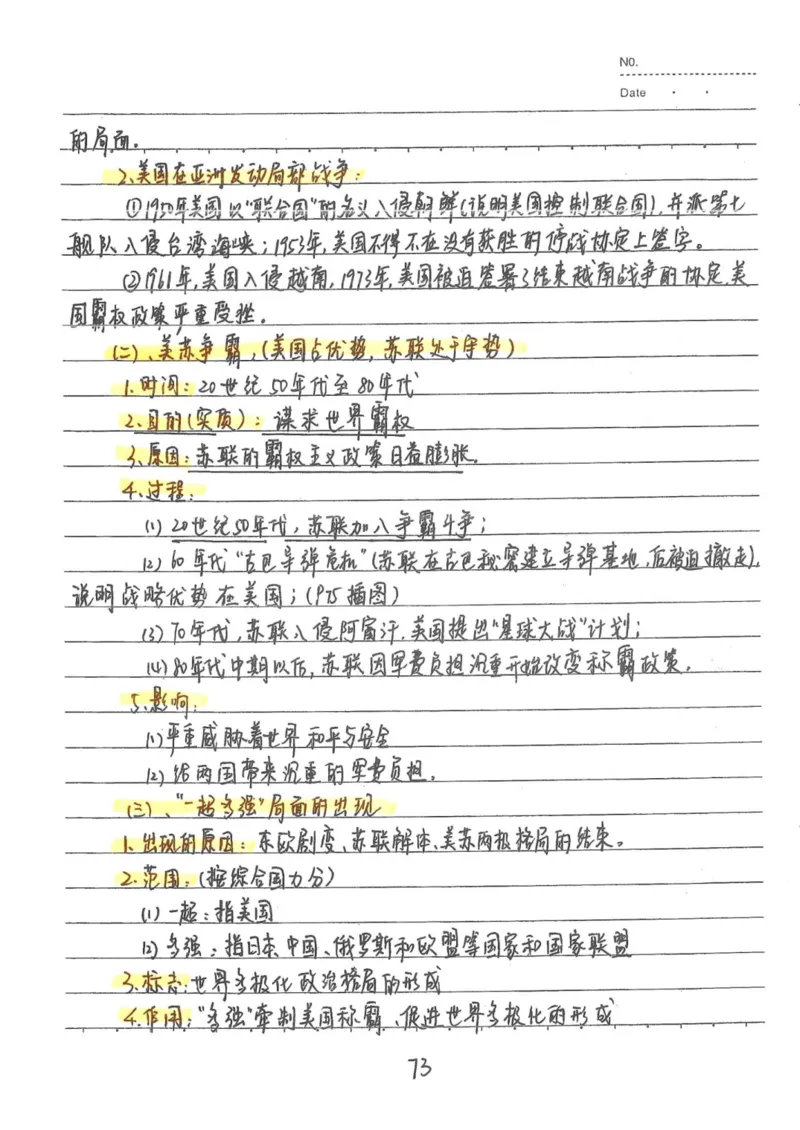 NO.
Date
的局面。
2、美国在亚洲发动局部战争:
①1950年美国以“联合国”的名义入侵朝鲜(说明美国控制联合国),并派第七
舰队入侵台湾海峡;1953年,美国不得不在没有获胜的停战协定上签字。
②1961年,美国入侵越南,1973年,美国被迫签署了结束越南战争的协定,美
国霸权政策严重受挫。
(二)、美苏争霸,(美国占优势,苏联处于守势)
1.时间:20世纪50年代至80年代
2.目的(实质):谋求世界霸权
3、原因:苏联的霸权主义政策日益膨胀。
4、过程:
(1)20世纪50年代,苏联加入争霸斗争;
(2)60年代“古巴导弹危机”(苏联在古巴秘密建立导弹基地,后被迫撤走),
说明战略优势在美国;(P75插图)
(3)70年代,苏联入侵阿富汗,美国提出“星球大战”计划;
(4)80年代中期以后,苏联因军费负担沉重开始改变称霸政策。
5、影响:
(1)严重威胁着世界和平与安全
(2)给两国带来沉重的军费负担。
(三)、“一超多强”局面的出现
1、出现的原因:东欧剧变、苏联解体、美苏两极格局的结束。
2.范围:(按综合国力分)
(1)一超:指美国
(2)多强:指日本、中国、俄罗斯和欧盟等国家和国家联盟
3、标志:世界多极化政治格局的形成
4、作用:“多强”牵制美国称霸、促进世界多极化的形成
73